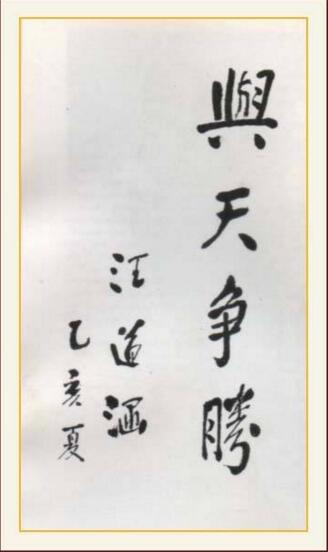 與天争勝
汪道涵
乙亥夏